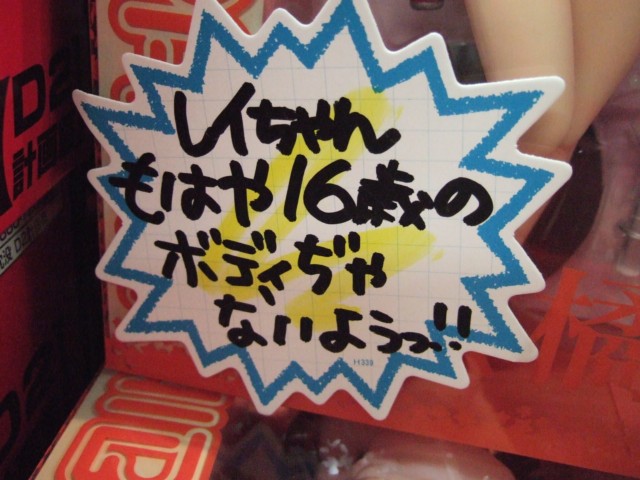 レイちゃん
もはや16歳の
ボディぢゃ
ないようっ!!
H339
計画